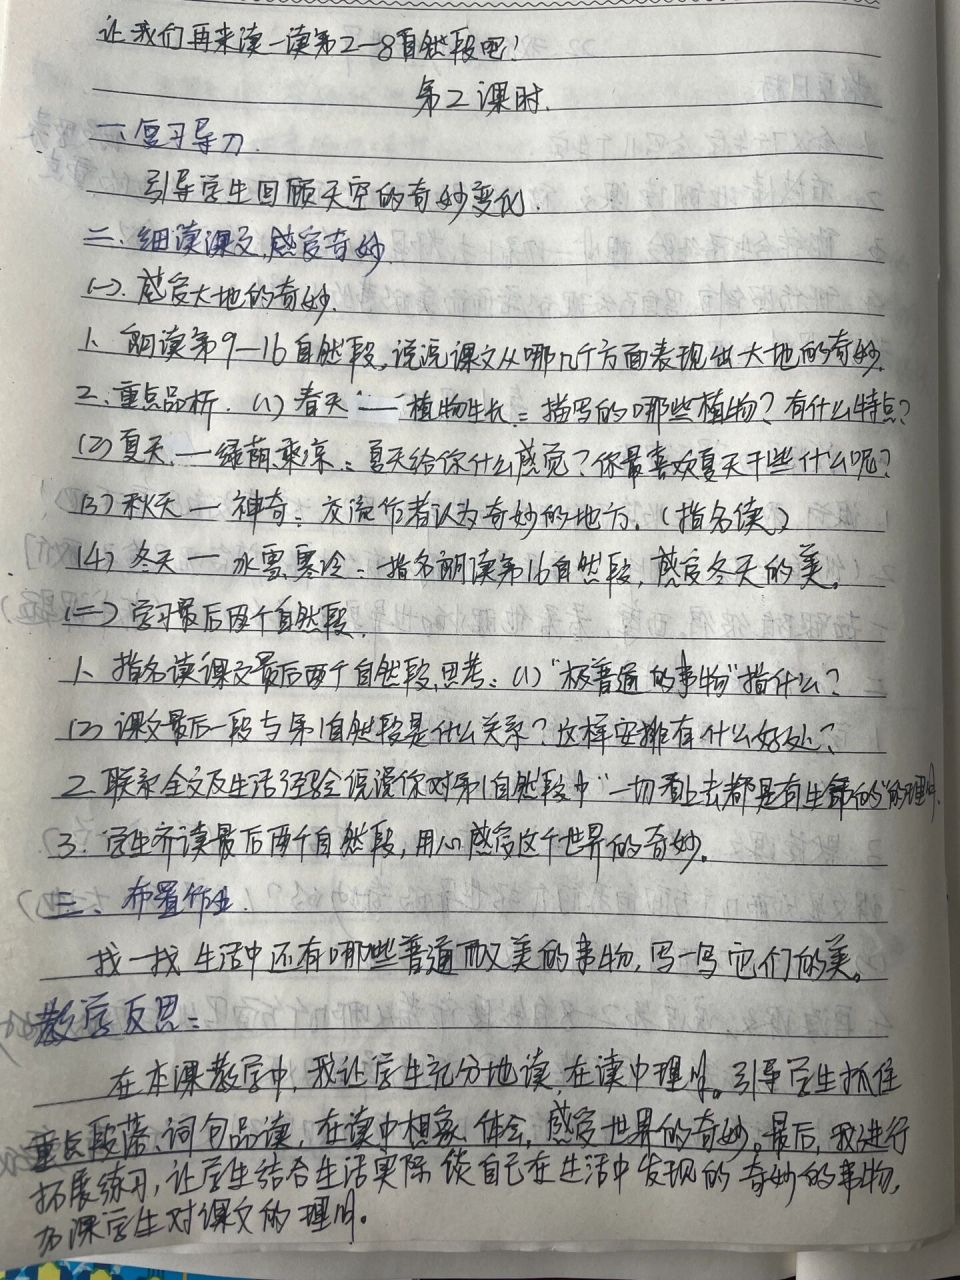 让我们再来读一读第2—8自然段吧！
第2课时.
一.复习导入.
引导学生回顾天空的奇妙变化.
二.细读课文,感受奇妙
(一).感受大地的奇妙.
1.朗读第9—16自然段,说说课文从哪几个方面表现出大地的奇妙.
2.重点品析.(1)春天——植物生长:描写的哪些植物?有什么特点?
(2)夏天—绿荫乘凉:夏天给你什么感觉?你最喜欢夏天干些什么呢?
(3)秋天—神奇:交流作者认为奇妙的地方.(指名读)
(4)冬天—冰雪寒冷:指名朗读第16自然段,感受冬天的美.
(二)学习最后两个自然段.
1.指名读课文最后两个自然段,思考:(1)“极普通的事物”指什么?
(2)课文最后一段与第1自然段是什么关系?这样安排有什么好处?
2.联系全文及生活经验说说你对第1自然段中“一切看上去都是有生命的”的理解.
3.学生齐读最后两个自然段,用心感受这个世界的奇妙.
三、布置作业.
找一找生活中还有哪些普通而又美的事物,写一写它们的美。
教学反思:
在本课教学中,我让学生充分地读,在读中理解。引导学生抓住
重点段落、词句品读,在读中想象、体会,感受世界的奇妙,最后,我进行
拓展练习,让学生结合生活实际谈自己在生活中发现的奇妙的事物,
加深学生对课文的理解。